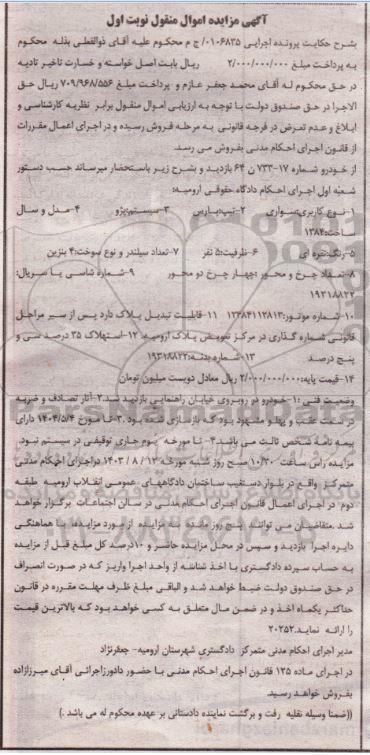 آگهی مزایده اموال منقول نوبت اول
بشرح حکایت پرونده اجرایی ۰۱۰۶۸۳۵/ ج م محکوم علیه آقای ذوالفعلی بذله محکوم
به پرداخت مبلغ ۲/۰۰۰/۰۰۰/۰۰۰ ریال بابت اصل خواسته و خسارت تاخیر تادیه
در حق محکوم له آقای محمد جعفر عازم و پرداخت مبلغ ۷۰۹/۹۶۸/۵۵۶ ریال حق
الاجرا در حق صندوق دولت با توجه به ارزیابی اموال منقول برابر نظریه کارشناسی و
ابلاغ و عدم تعرض در فرجه قانونی به مرحله فروش رسیده و در اجرای اعمال مقررات
از قانون اجرای احکام مدنی بفروش می رسد.
از خودرو شماره ۱۷-۷۳۳ ن ۶۴ بازدید و بشرح زیر باستحضار میرساند حسب دستور
شعبه اول اجرای احکام دادگاه حقوقی ارومیه:
۱-نوع کاربری:سواری ۲-تیپ:پارس ۳-سیستم:پژو ۴-مدل و سال
ساخت:۱۳۸۴
۵-رنگ:نقره ای ۶-ظرفیت:۵ نفر ۷-تعداد سیلندر و نوع سوخت:۴ بنزین
۸-تعداد چرخ و محور :چهار چرخ دو محور ۹-شماره شاسی یا سریال:
۱۹۳۱۸۸۲۲
۱۰-شماره موتور:۱۲۳۸۴۱۱۲۸۱۳ ۱۱-قابلیت تبدیل پلاک دارد پس از سیر مراحل
قانونی شماره گذاری در مرکز تعویض پلاک ارومیه. ۱۲-استهلاک ۳۵ درصد سی و
پنج درصد ۱۳-شماره بدنه:۱۹۳۱۸۸۲۲
۱۴-قیمت پایه:۲/۰۰۰/۰۰۰/۰۰۰ ریال معادل دویست میلیون تومان
وضعیت فنی :۱-خودرو در روبروی خیابان راهنمایی بازدید شد.۲-آثار تصادف و ضربه
در سمت عقب و پهلو مشهود بود که بازسازی شده بود .۳-تا مورخ ۱۴۰۴/۵/۴ دارای
بیمه نامه شخص ثالث می باشد.۴- تا مورخه یوم جاری توقیفی در سیستم نبود.
مزایده راس ساعت ۱۰/۳۰ صبح روز شنبه مورخه ۱۲ / ۸ / ۱۴۰۳ دراجرای احکام مدنی
متمرکز واقع در بلوار دستغیب ساختمان دادگاههای عمومی انقلاب ارومیه طبقه
دوم در اجرای اعمال قانون اجرای احکام مدنی در سالن اجتماعات برگزار خواهد
شد .متقاضیان می توانند پنج روز مانده به مزایده از مورد مزایده با هماهنگی
دایره اجرا بازدید و سپس در محل مزایده حاضر و ۱۰درصد کل مبلغ قبل از مزایده
به حساب سپرده دادگستری با اخذ شناسه از واحد اجرا واریز که در صورت انصراف
در حق صندوق دولت ضبط خواهد شد و الباقی مبلغ ظرف مهلت مقرره در قانون
حداکثر یکماه اخذ و در ضمن مال متعلق به کسی خواهد بود که بالاترین قیمت
را ارائه نماید.۲۰۲۵۲
مدیر اجرای احکام مدنی متمرکز دادگستری شهرستان ارومیه- جعفرنژاد
در اجرای ماده ۱۲۵ قانون اجرای احکام مدنی با حضور دادورزاجرائی آقای میرزازاده
بفروش خواهد رسید.
((ضمنا وسیله نقلیه رفت و برگشت نماینده دادستانی بر عهده محکوم له می باشد .)